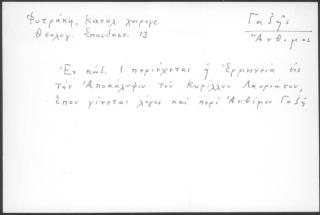 Φυτράκη, Καταλ. χειρογρ.
Θεολογ. Σπουδαστ. 13
Γαζῆς
Ἄνθιμος
Ἐν κώδ. 1 περιέχεται ἡ Ἑρμηνεία εἰς
τὴν Ἀποκάλυψιν τοῦ Κυρίλλου Λαυριώτου,
ὅπου γίνεται λόγος καὶ περὶ Ἀνθίμου Γαζῆ